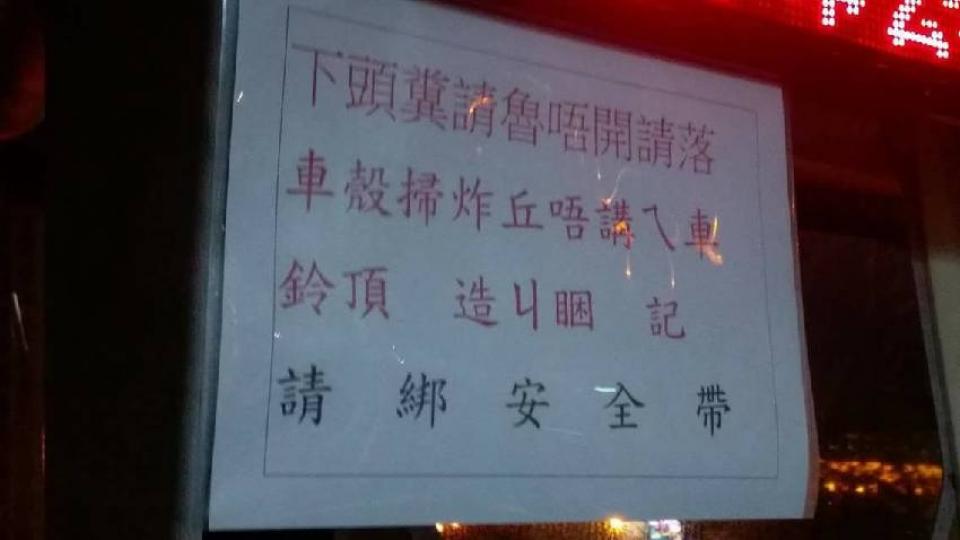 下頭糞請魯唔開請落
車殼掃炸丘唔講乁車
鈴頂 造ㄐ睏 記
請 綁 安 全 帶